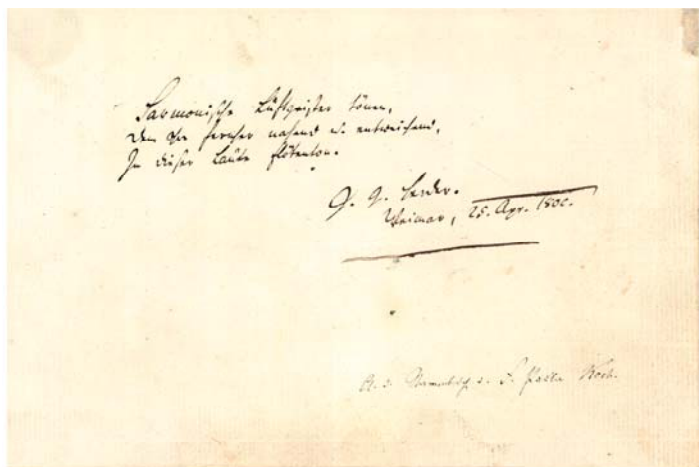 Harmonische Luftgeister tönen,
Dem Ohr fernher nahend u. entweichend,
In dieser Laute Flötenton.
J. G. Herder.
Weimar, 25. Apr. 1800.
A. d. Stammbuch v. F. Koch.